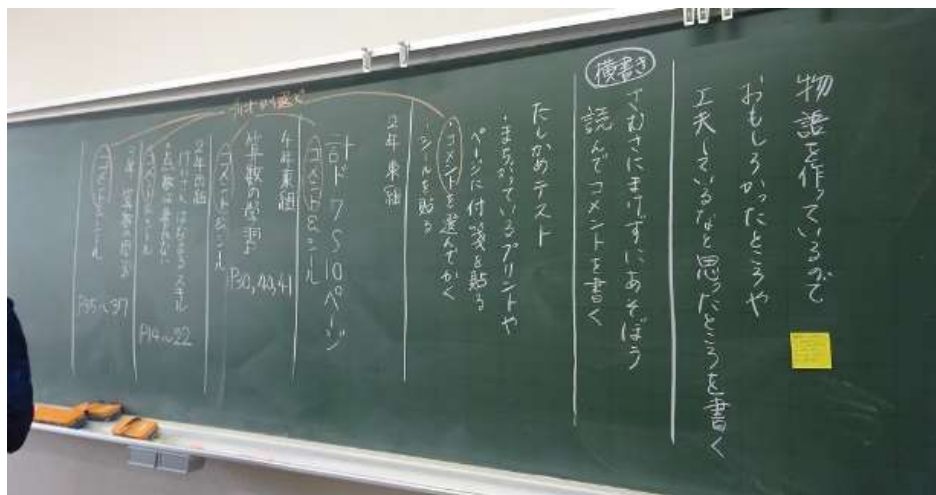 物語を作っているので
おもしろかったところや
工夫しているなと思ったところを書く
横書き
さむさにまけずにあそぼう
読んでコメントを書く
たしかめテスト
・まちがっているプリントや
ページに付箋を貼る
・コメントを選んでかく
・シールを貼る
2年東組
計ド7〜10ページ
コメント&シール
4年東組
算数の学習
P30,40,41
コメント&シール
2年西組
けいさんはなまるスキル
P14〜22
コメント&シール
P35〜37
コメント&シール